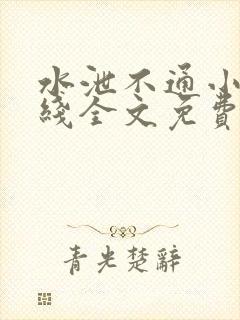 水泄不通小
线全文免費
青光楚辭